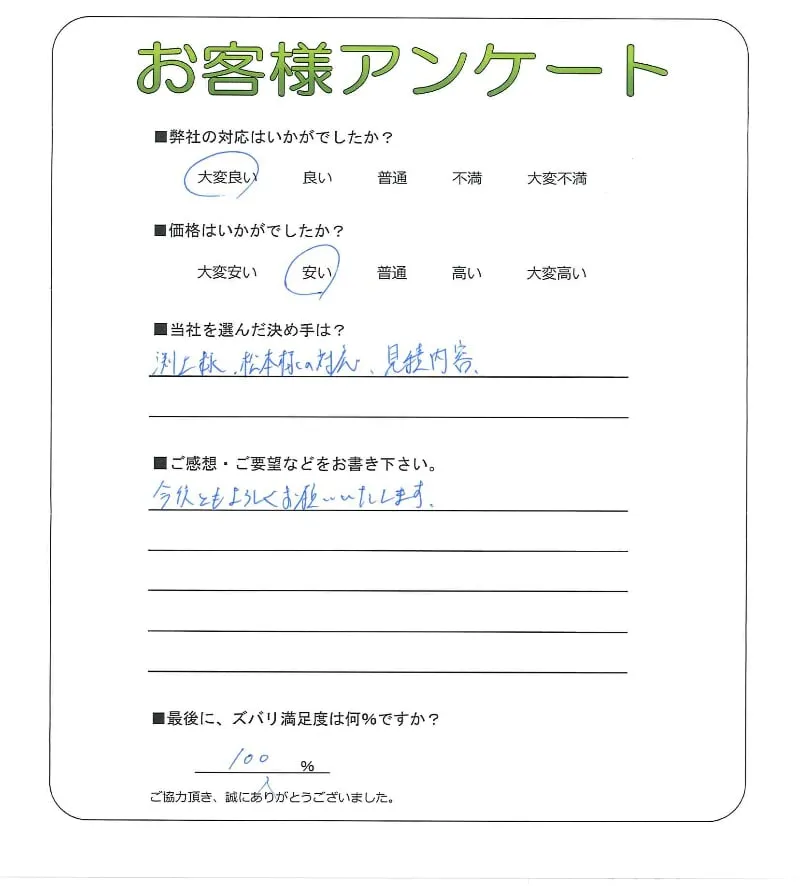 お客様アンケート
■弊社の対応はいかがでしたか？
大変良い 良い 普通 不満 大変不満
■価格はいかがでしたか？
大変安い 安い 普通 高い 大変高い
■当社を選んだ決め手は？
渕上様、松本様の対応、見積内容、
■ご感想・ご要望などをお書き下さい。
今後ともよろしくお願いいたします。
■最後に、ズバリ満足度は何%ですか？
100 %
ご協力頂き、誠にありがとうございました。